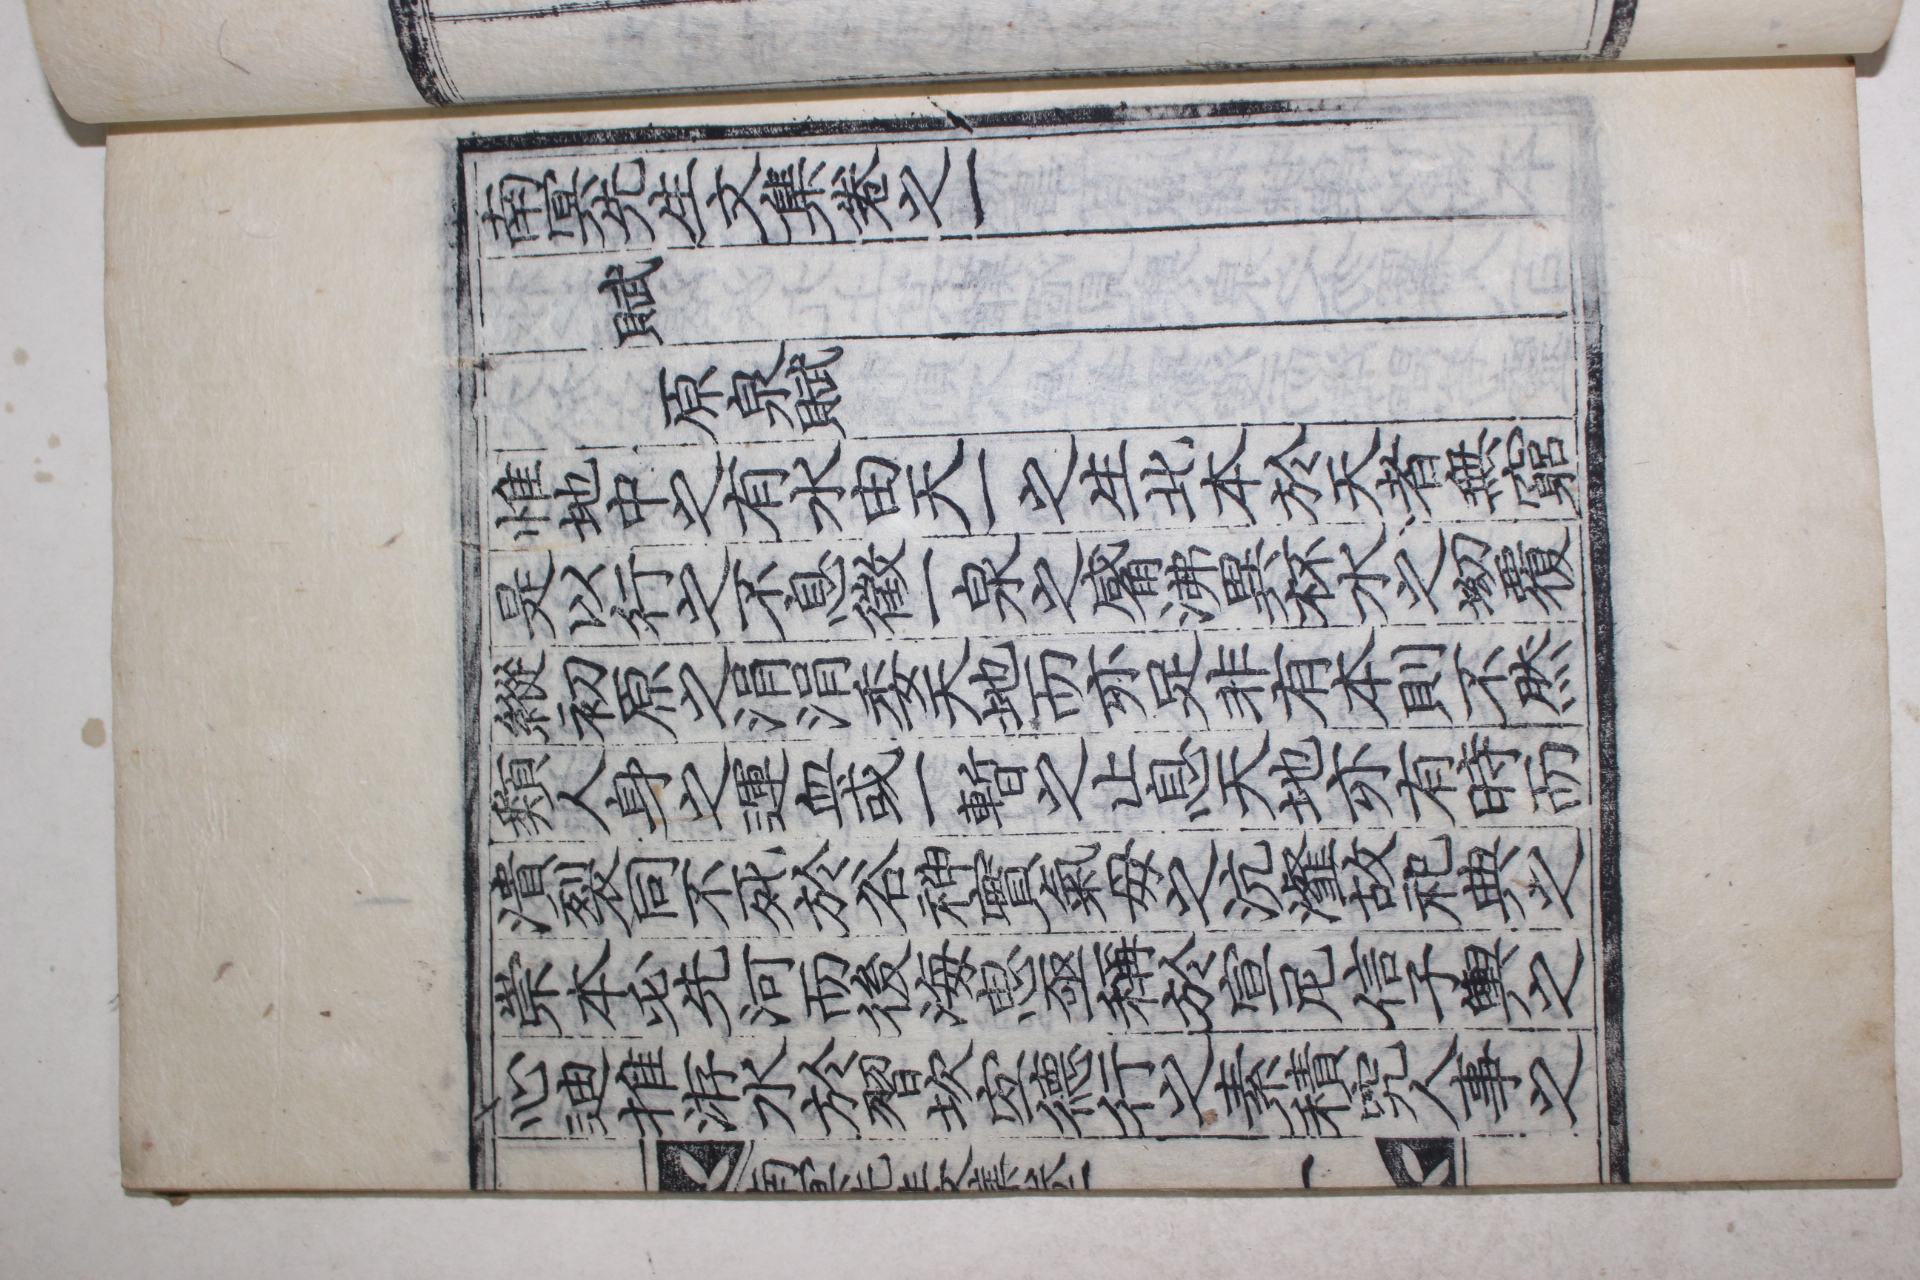 南冥先生文集卷之一
賦
原泉賦
惟地中之有水由天一之生北本於天者無窮
是以行之不息徵一泉之觱沸異杯水之坳覆
縱初原之涓涓委天地而亦足非有本則不然
類人身之運血或一暫之止息天地亦有時而
潰裂同不死於谷神實氣母之沆瀣故祀典之
崇本必先河而後海思亟稱於宣尼信子輿之
心迪推洊水於習坎宜德行之素積究人事之
南冥先生文集卷一 一